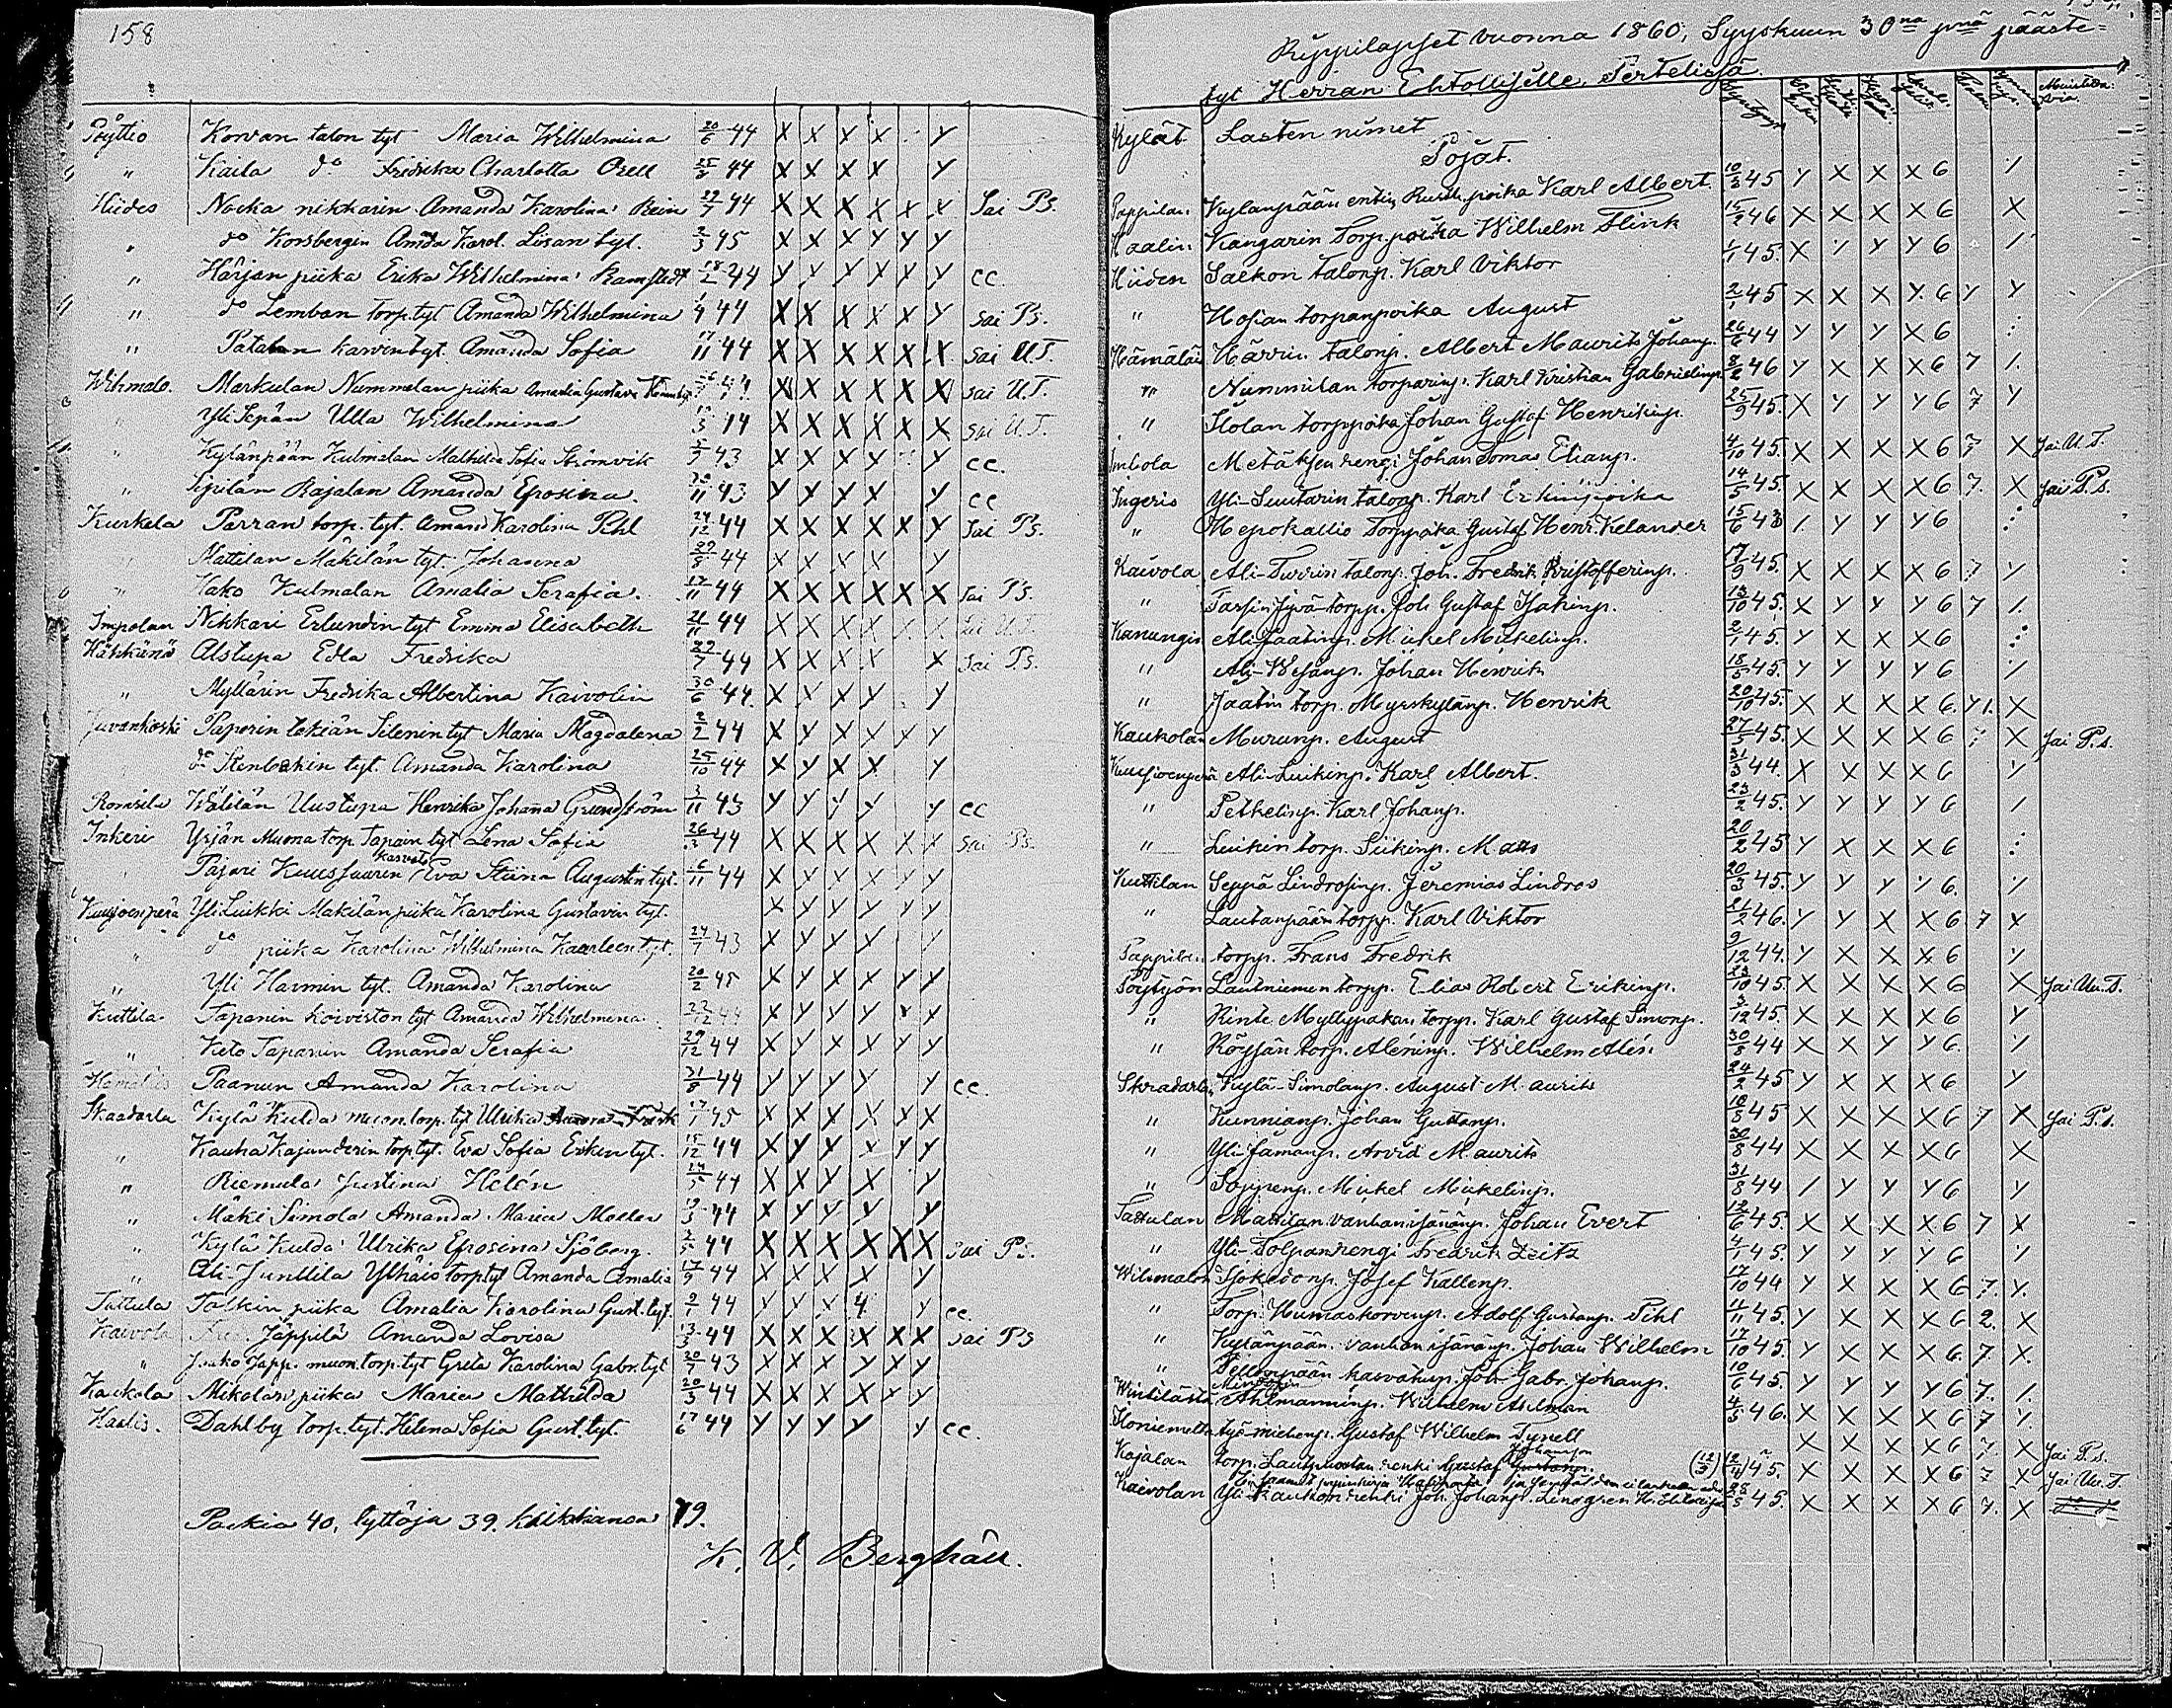 158
Pöytiö Korvan talon tyt Maria Wilhelmina 20/6 44 X X X X Y
" Kaila do Fredrika Charlotta Orell 25/ 44 X X X X Y
Hiides Nocka nikkarin Amanda Karolina Rein 27/7 44 X X X X X X Sai Ps.
" do Korsbergin Amda Karol. Liisan tyt. 2/3 45 X X X Y Y Y
" Härjan piika Erika Wilhelmina Ramstedt 18/2 44 Y Y Y X X Y cc.
" do Lemban torp. tyt Amanda Wilhelmina 44 X X X X X Y sai Ps.
" Patalan karvin tyt. Amanda Sofia 17/11 44 X X X X X X sai U.T.
Wihmalo Markulan Nummelan piika Amalia Gustava X X X X X X sai U.T.
" Yli Sepän Ulla Wilhelmina X X X X X X sai U.T.
" Kylänpään Kulmalan Mathilda Sofia Strömvik 43 X X X X Y cc.
" Sipilän Rajalan Amanda Efrosina. /11 43 Y X X X Y cc
Kurkela Parran torp. tyt. Amand Karolina Pihl 24/12 44 X X X X X Y Sai Ps.
" Mattilan Mäkilän tyt. Johanna 29/8 44 X X X X Y
" Kako Kulmalan Amalia Serafia. 12/11 44 X X X X X X sai Ps
Impolan Nikkari Erlundin tyt Emma Elisabeth 21/11 44 X X X X X X sai U.T.
Alstupa Edla Fredrika 22/7 44 X X X X X sai Ps.
" Myllärin Fredrika Albertina Kaivolin 30/6 44. X X Y X Y
Juvankoski Paperin tekiän Silenin tyt Maria Magdalena 2/2 44 X Y X X X Y
do Stenbackin tyt. Amanda Karolina 25/10 44 X Y X X Y
Romsilu Wälilän Uustupa Henrika Johana Grundström 3/11 43 Y Y Y Y Y cc
Inkeri Yrjän Muona torp Tapain tyt Lena Sofia 26/3 44 X X X X X X sai Ps.
Pajari Kuussaaren kasvatti Eva Stiina Augustin tyt. 6/11 44 X Y Y Y Y Y
Kuusjoenperä Yli Luikki Makilän piika Karolina Gustavin tyt. X Y Y Y Y Y
" do piika Karolina Wilhelmina Kaarleen tyt. 24/7 43 X Y Y X Y
" Yli Harmin tyt. Amanda Karolina 20/2 45 X X X X Y Y
Kuttila Tapanin Koiviston tyt Amanda Wilhelmina X Y Y Y X X
" Keto Tapanin Amanda Serafia 29/12 44 X Y X Y X Y
Hämäläis Paanun Amanda Karolina 31/8 44 Y Y Y Y Y cc.
Skaadarla Kylä Kulda muon. torp. tyt Ulrika 17/1 45 X X X X Y X
" Kauha Kajanderin torp. tyt. Eva Sofia Erken tyt. 15/12 44 X Y Y X Y Y
" Riemula Justina Helén 24/5 44 X X Y X Y
" Mäki Simola Amanda Maria 19/3 44 X Y Y Y Y
" Kylä Kulda Ulrika Efrosina Sjöberg. 2/5 44 X X X X X X Sai Ps.
" Ali-Junttila Ylhäis torp tyt Amanda Amalia 17/9 44 X X X X Y
Tattula Talkin piika Amalia Karolina Gust. tyt. 2/1 44 Y Y Y 4 Y cc.
Kaivola Jäppilä Amanda Lovisa 13/3 44 X X X X X X sai Ps
" Jaako Japp. muon. torp. tyt Greta Karolina Gabr. tyt 20/7 43 X X X Y X Y
Kaukola Mikolan piika Maria Mathilda 20/3 44 X X X X X Y
Haalis. Dahlby torp. tyt. Helena Sofia Gust. tyt. 17/6 44 Y Y Y Y Y cc.
Poikia 40, tyttöjä 39. kaikkiansa 79.
K. V. Berghäll.
Rippilapset vuonna 1860, Syyskuun 30na pnä pääste=
tyt Herran Ehtolliselle, Pertelissä.
Kylät. Lasten nimet
Pojat.
Pappilan Kylänpään entis. Rusth. poika Karl Albert. 10/3 45 Y X X X 6
Haalin Kangarin Torp. poika Wilhelm Flink 15/2 46 X X X X 6 X
Hiiden Saekon talonp. Karl Viktor 1/1 45. X Y Y Y 6
" Hosian torpanpoika August 2/1 45 X X X Y 6 Y Y
Hämäläis Härrin talonp. Albert Maurits Johanp. 26/6 44 Y Y Y X 6
" Nummilan torparinp. Karl Kristian Gabrielinp 8/2 46 Y X X X 6 7
" Tlolan torppoika Johan Gustaf Henrikinp. 25/9 45. X Y Y Y 6 7 Y
Imbola Metäksen rengi Johan Tomas Elianp. 4/10 45. X X X X 6 7 X Jai U.T.
Ingeris Yli-Suutarin talonp. Karl Erkinpoika 14/5 45. X X X X 6 7. X Jai Ps.
" Hepokallio Torppoika Gustaf Henr. Kelander 15/6 43 Y Y Y 6
Kaivola Ali-Turrin talonp. Joh. Fredrik Kristofferinp. 17/9 45. X X X X 6 7 Y
" torpp. Joh Gustaf Isakinp. 13/10 45. X Y Y Y 6 7
Kanungin Ali-Jaatinp. Mickel Mickelinp. 2/1 45. Y X X X 6
" Ali-Wesanp. Johan Henrik 18/5 45 Y Y Y Y 6
" Jaatin torp. Myrskylänp. Henrik 20/10 45. X X X X 6. X
Kaukolan Murunp. August 27/ 45. X X X X 6 7 X Jai P.s.
Kuusjoenperä Ali-Luikinp. Karl Albert. 31/3 44. X X X X 6 Y
" Petkelinp. Karl Johanp. 23/2 45. Y Y Y Y 6
" Luikin torp. Siikinp. Matts 20/2 45 Y X X X 6
Kuttilan Seppä Lindrosinp. Jeremias Lindros 20/3 45. Y Y Y Y 6.
" Lautanpään torpp. Karl Viktor 21/2 46. Y Y X X 6 7 X
Pappilan torpp. Frans Fredrik 9/12 44. Y X X X 6 Y
Pöytiön Lautniemen torpp. Elias Robert Erikinp. 23/10 45. X X X X 6 X Jai Uu. T.
" Rinte Myllypakan torpp. Karl Gustaf Simonp. 3/12 45. X X X X 6 Y
" Röysän torp. Alèninp. Wilhelm Alén 30/8 44 X X Y Y 6.
Skradarlan Kylä-Simolanp. August Maurits 24/2 45 Y X X X 6 Y
" Kunnianp. Johan Gustanp. 10/8 45 X X X X 6 7 X Jai P.s.
" Yli-Jamanp. Arvid Maurits 30/8 44 X X X X 6 X
" Soppenp. Mickel Mickelinp. 31/8 44 Y Y Y 6 Y
Tattulan Mattilan vanhan isänänp. Johan Evert 12/6 45. X X X X 6 7 X
" Yli-Tolpan rengi Fredrik Zeitz 4/1 45. Y Y Y Y 6 Y
Wihmalon Josef Kallenp. 17/10 44 Y X X X 6 7. Y.
" Torp. Humaskorvenp. Adolf Gustanp. Pihl 11/11 45. Y X X X 6 2. X
" Kylänpään vanhan isänänp. Johan Wilhelm 17/10 45 Y X X X 6. 7. X.
" kasvatusp. Joh. Gabr. Johanp. 10/6 45. Y Y Y Y 6 7.
Wintilästä Ahlmanninp. Wilhelm Ahlman 4/5 46. X X X X 6 7
Honiemelta työ-miehenp. Gustaf Wilhelm Tynell X X X X 6 7 X Jai P.s.
Kajalan torp. Lautnuotan renki Gustaf Johanp. (12/3) (12/11) 45. X X X X 6 7 X Jai Uu. T.
Kaivolan Yli-Kaukon renki Joh. Johanp. Lindgren 28/5 45. X X X X 6 7. X